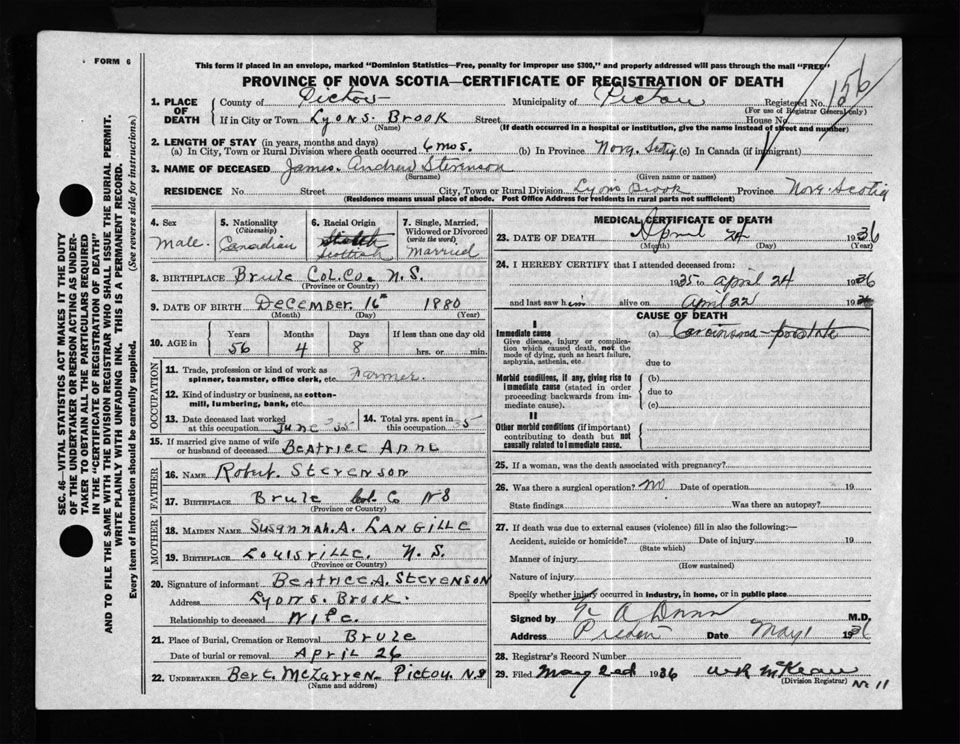 FORM 6
This form if placed in an envelope, marked "Dominion Statistics—Free, penalty for improper use $300," and properly addressed will pass through the mail "FREE"
PROVINCE OF NOVA SCOTIA—CERTIFICATE OF REGISTRATION OF DEATH
156
1. PLACE OF DEATH
County of Pictou Municipality of Pictou Registered No.
(For use of Registrar General only)
If in City or Town Lyons. Brook Street House No.
(Name) (If death occurred in a hospital or institution, give the name instead of street and number)
2. LENGTH OF STAY (in years, months and days)
(a) In City, Town or Rural Division where death occurred 6 mos. (b) In Province Nova. Scotia (c) In Canada (if immigrant)
3. NAME OF DECEASED James. Andrew Stevenson
(Surname) (Given name or names)
RESIDENCE No Street City, Town or Rural Division Lyons Brook Province Nova. Scotia
(Residence means usual place of abode. Post Office Address for residents in rural parts not sufficient)
4. Sex Male.
5. Nationality (Citizenship) Canadian
6. Racial Origin Scottish
7. Single, Married, Widowed or Divorced (write the word) Married
8. BIRTHPLACE Brule Col. Co. N.S.
(Province or Country)
9. DATE OF BIRTH December 16th 1880
(Month) (Day) (Year)
10. AGE in Years 56 Months 4 Days 8 If less than one day old hrs. or min.
OCCUPATION
11. Trade, profession or kind of work as spinner, teamster, office clerk, etc. Farmer.
12. Kind of industry or business, as cotton-mill, lumbering, bank, etc.
13. Date deceased last worked at this occupation June 35
14. Total yrs. spent in this occupation 35
15. If married give name of wife or husband of deceased Beatrice Anne
FATHER
16. NAME Robert. Stevenson
17. BIRTHPLACE Brule Col. Co NS
(Province or Country)
MOTHER
18. MAIDEN NAME Susannah. A. Langille
19. BIRTHPLACE Louisville. N.S.
(Province or Country)
20. Signature of informant Beatrice A. Stevenson
Address Lyons. Brook.
Relationship to deceased Wife.
21. Place of Burial, Cremation or Removal Brule
Date of burial or removal April 26
22. UNDERTAKER Bert. McLarren. Pictou. NS
(Name and address)
MEDICAL CERTIFICATE OF DEATH
23. DATE OF DEATH April 24 1936
(Month) (Day) (Year)
24. I HEREBY CERTIFY that I attended deceased from:
1935 to April 24 1936
and last saw him alive on April 22 1936
CAUSE OF DEATH
I
Immediate cause
Give disease, injury or complication which caused death, not the mode of dying, such as heart failure, asphyxia, asthenia, etc.
(a) Carcinoma - prostate
due to
Morbid conditions, if any, giving rise to immediate cause (stated in order proceeding backwards from immediate cause).
(b)
due to
(c)
II
Other morbid conditions (if important) contributing to death but not causally related to immediate cause.
25. If a woman, was the death associated with pregnancy?
26. Was there a surgical operation? no Date of operation 19
State findings Was there an autopsy?
27. If death was due to external causes (violence) fill in also the following:—
Accident, suicide or homicide? Date of injury 19
(State which)
Manner of injury
(How sustained)
Nature of injury
Specify whether injury occurred in industry, in home, or in public place
Signed by A Dunn M.D.
Address Date May 1 1936
28. Registrar's Record Number
29. Filed May 2nd 1936 W R McKean
(Division Registrar)
No 11
SEC. 46—VITAL STATISTICS ACT MAKES IT THE DUTY
OF THE UNDERTAKER OR PERSON ACTING AS UNDERTAKER "TO OBTAIN ALL THE PARTICULARS REQUIRED
IN THE "CERTIFICATE OF REGISTRATION OF DEATH"
AND TO FILE THE SAME WITH THE DIVISION REGISTRAR WHO SHALL ISSUE THE BURIAL PERMIT.
WRITE PLAINLY WITH UNFADING INK. THIS IS A PERMANENT RECORD.
Every item of information should be carefully supplied. (See reverse side for instructions.)